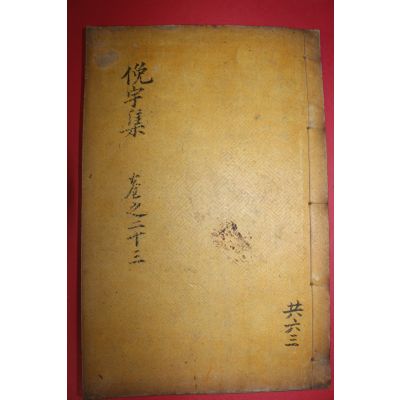 俛宇集
卷之二十三
共六三